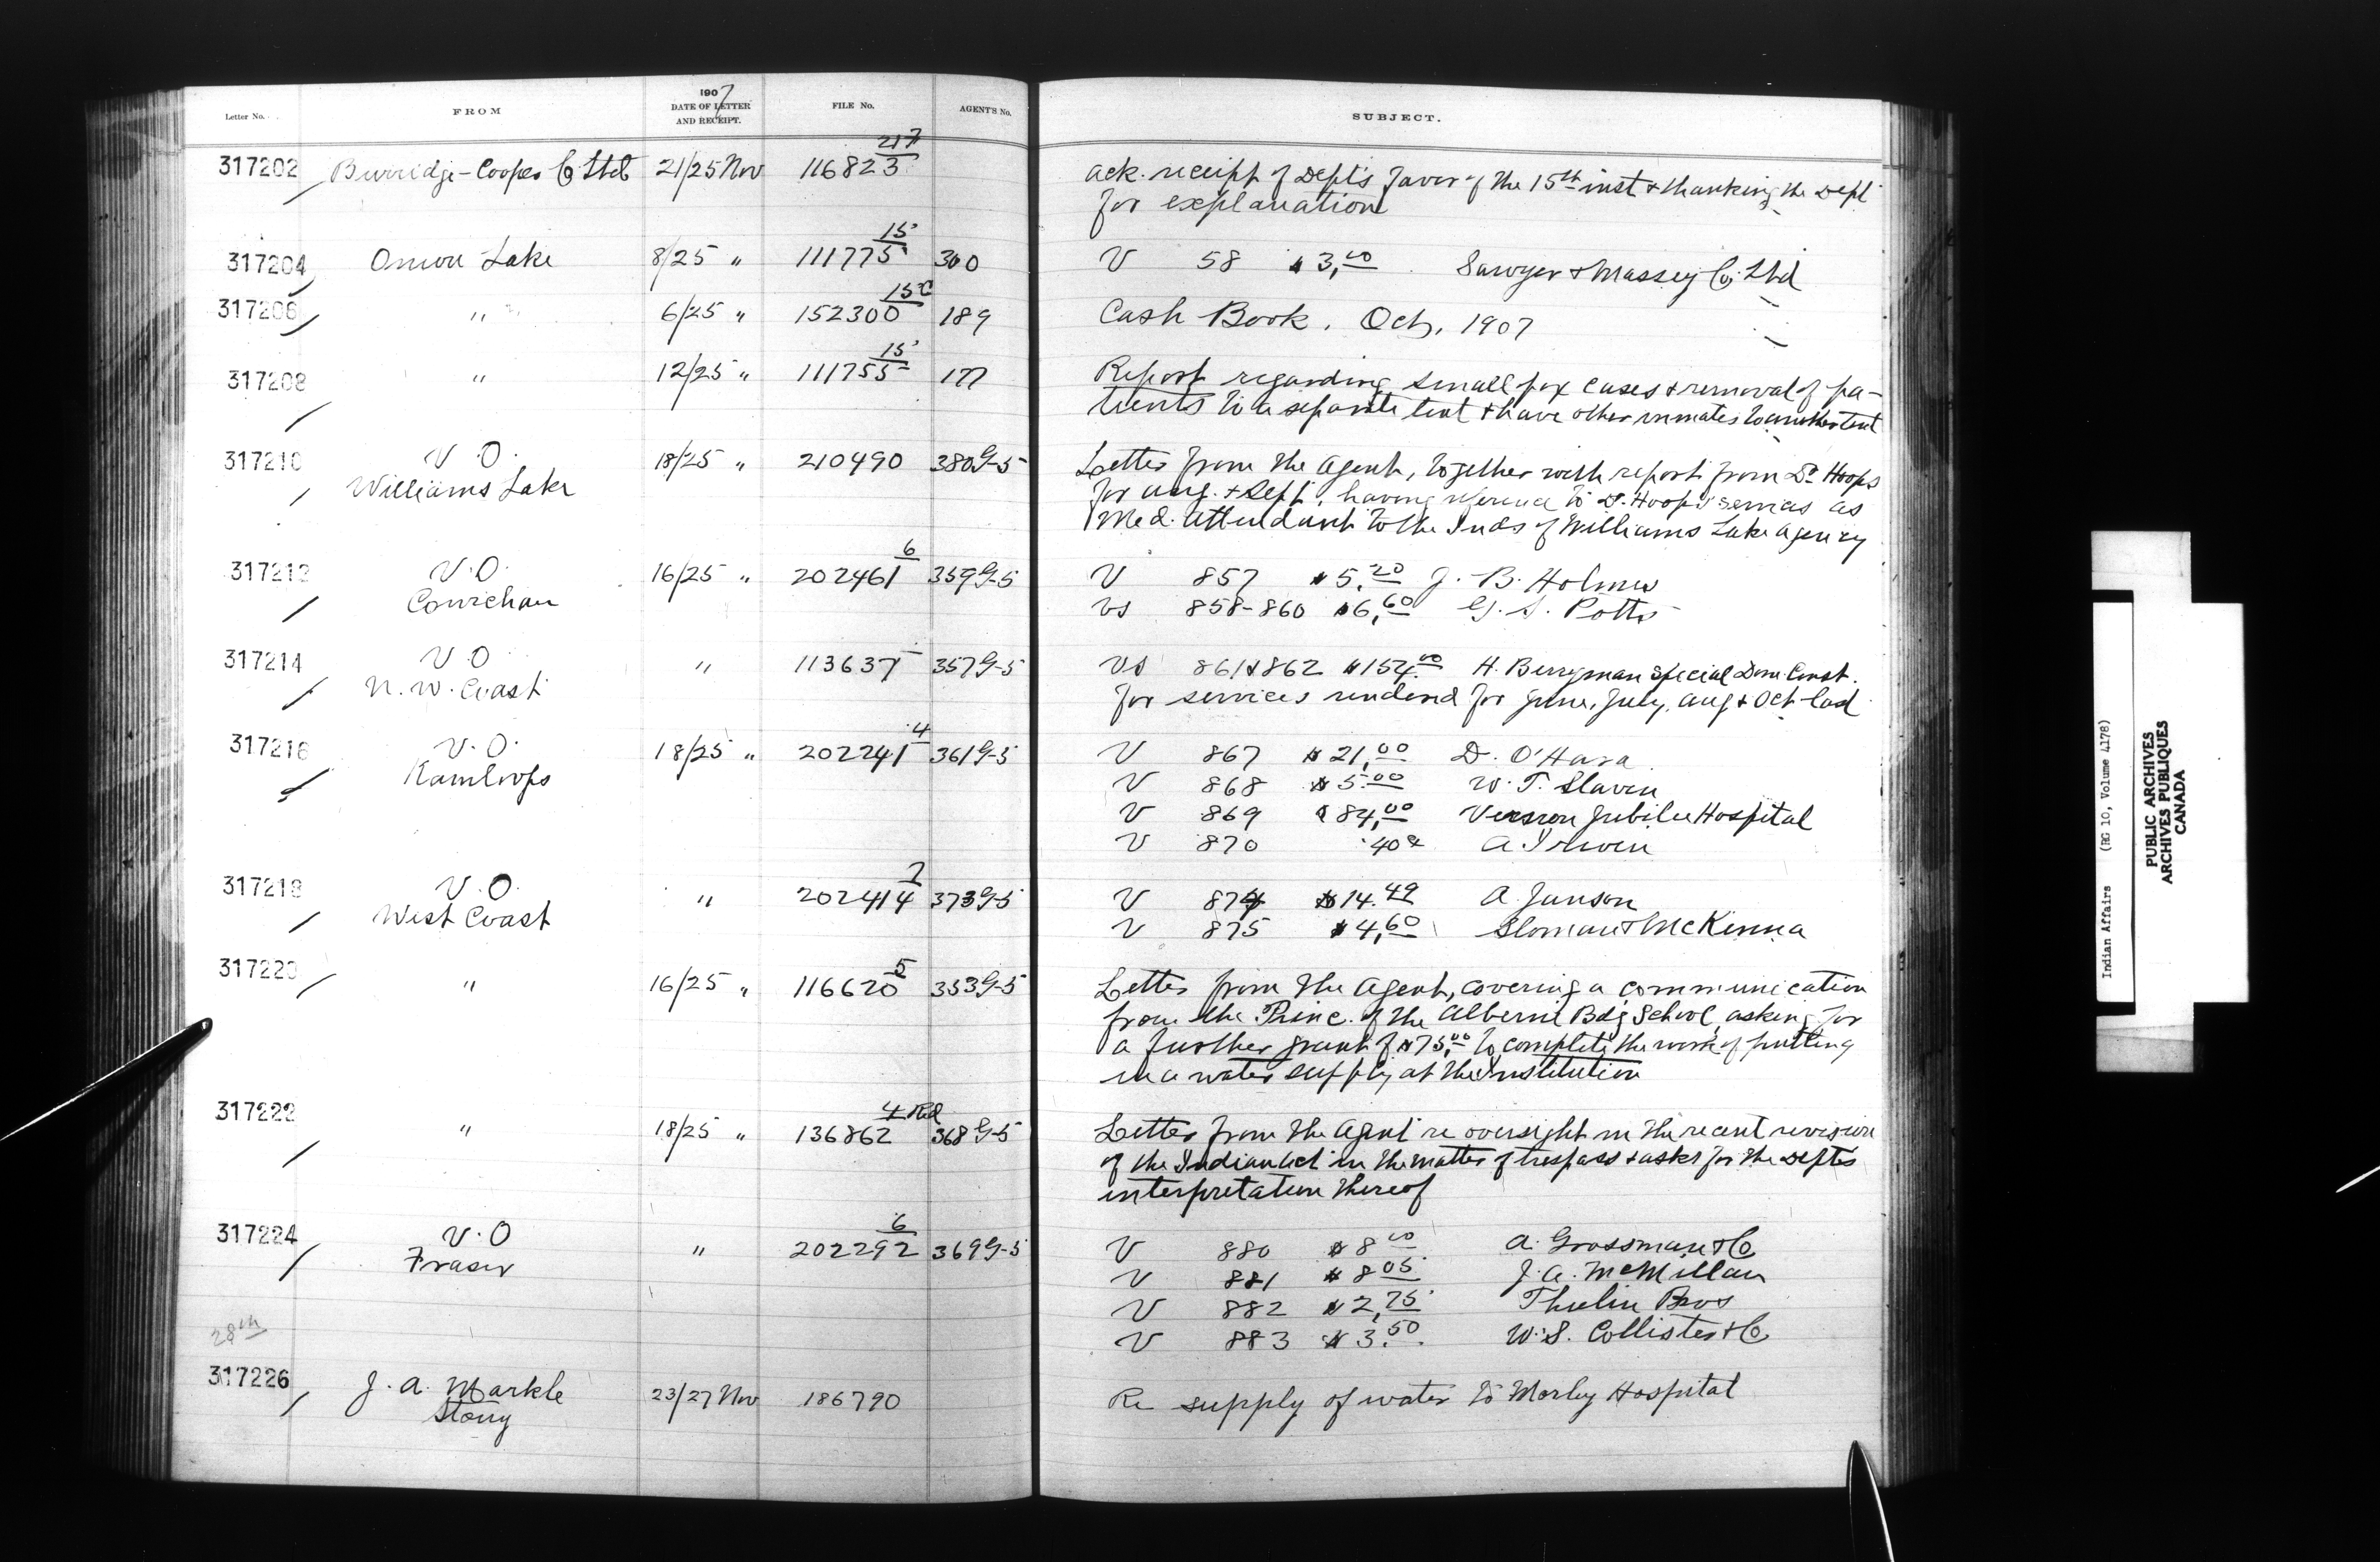 Letter No. FROM 1907 DATE OF LETTER AND RECEIPT. FILE No. AGENT'S No. SUBJECT.
317202 Burridge-Cooper Co Ltd 21/25 Nov 116823 217 ack. receipt of Dept's favor of the 15th inst & thanking the Dept
for explanation
317204 Onion Lake 8/25 " 111775 15 300 V 58 $3,00 Sawyer & Massey Co. Ltd
317206 " " 6/25 " 152300 15C 189 Cash Book. Oct, 1907
317208 " 12/25 " 111755 15 177 Report regarding small pox cases & removal of pa-
tients to a separate tent & have other inmates to another tent
317210 V.O. 18/25 " 210490 380G-5 Letter from the Agent, together with report from Dr Hoops
Williams Lake for aug. & Sept, having reference to Dr. Hoops' services as
Med. Attendant to the Inds of Williams Lake agency
317212 V.O. 16/25 " 202461 6 359G-5 V 857 $5,20 J. B. Holmes
Cowichan vs 858-860 $6,60 G. S. Potts
317214 V.O " 113637 357G-5 vs 861&862 $154.00 H. Berryman Special Dom. Const.
N. W. Coast for services rendered for June, July, aug & Oct last
317216 V.O. 18/25 " 202241 4 361G-5 V 867 $21,00 D. O'Hara
Kamloops V 868 $5.00 W. T. Slavin
V 869 $84,00 Vernon Jubilee Hospital
V 870 .40¢ A. Irwin
317218 V.O. " 202414 7 373G-5 V 874 $14.49 A. Junson
West Coast V 875 $4,60 Sloman & McKinna
317220 " 16/25 " 116620 5 353G-5 Letter from the Agent, covering a communication
from the Princ. of the Alberni Bdg School, asking for
a further grant of $75,00 to complete the work of putting
in a water supply at the Institution
317222 " 18/25 " 136862 4 Rid 368G-5 Letter from the Agent re oversight in the recent revision
of the Indian Act in the matter of trespass & asks for the Depts
interpretation thereof
317224 V.O " 202292 6 369G-5 V 880 $8 00 A. Grossman & Co
Fraser V 881 $8 05 J. A. McMillan
V 882 $2,75 Thulin Bros
28th V 883 $3.50 W. S. Collister & Co
317226 J. A. Markle 23/27 Nov 186790 Re supply of water to Morley Hospital
Stony
Indian Affairs (RG 10, Volume 4178)
PUBLIC ARCHIVES
ARCHIVES PUBLIQUES
CANADA